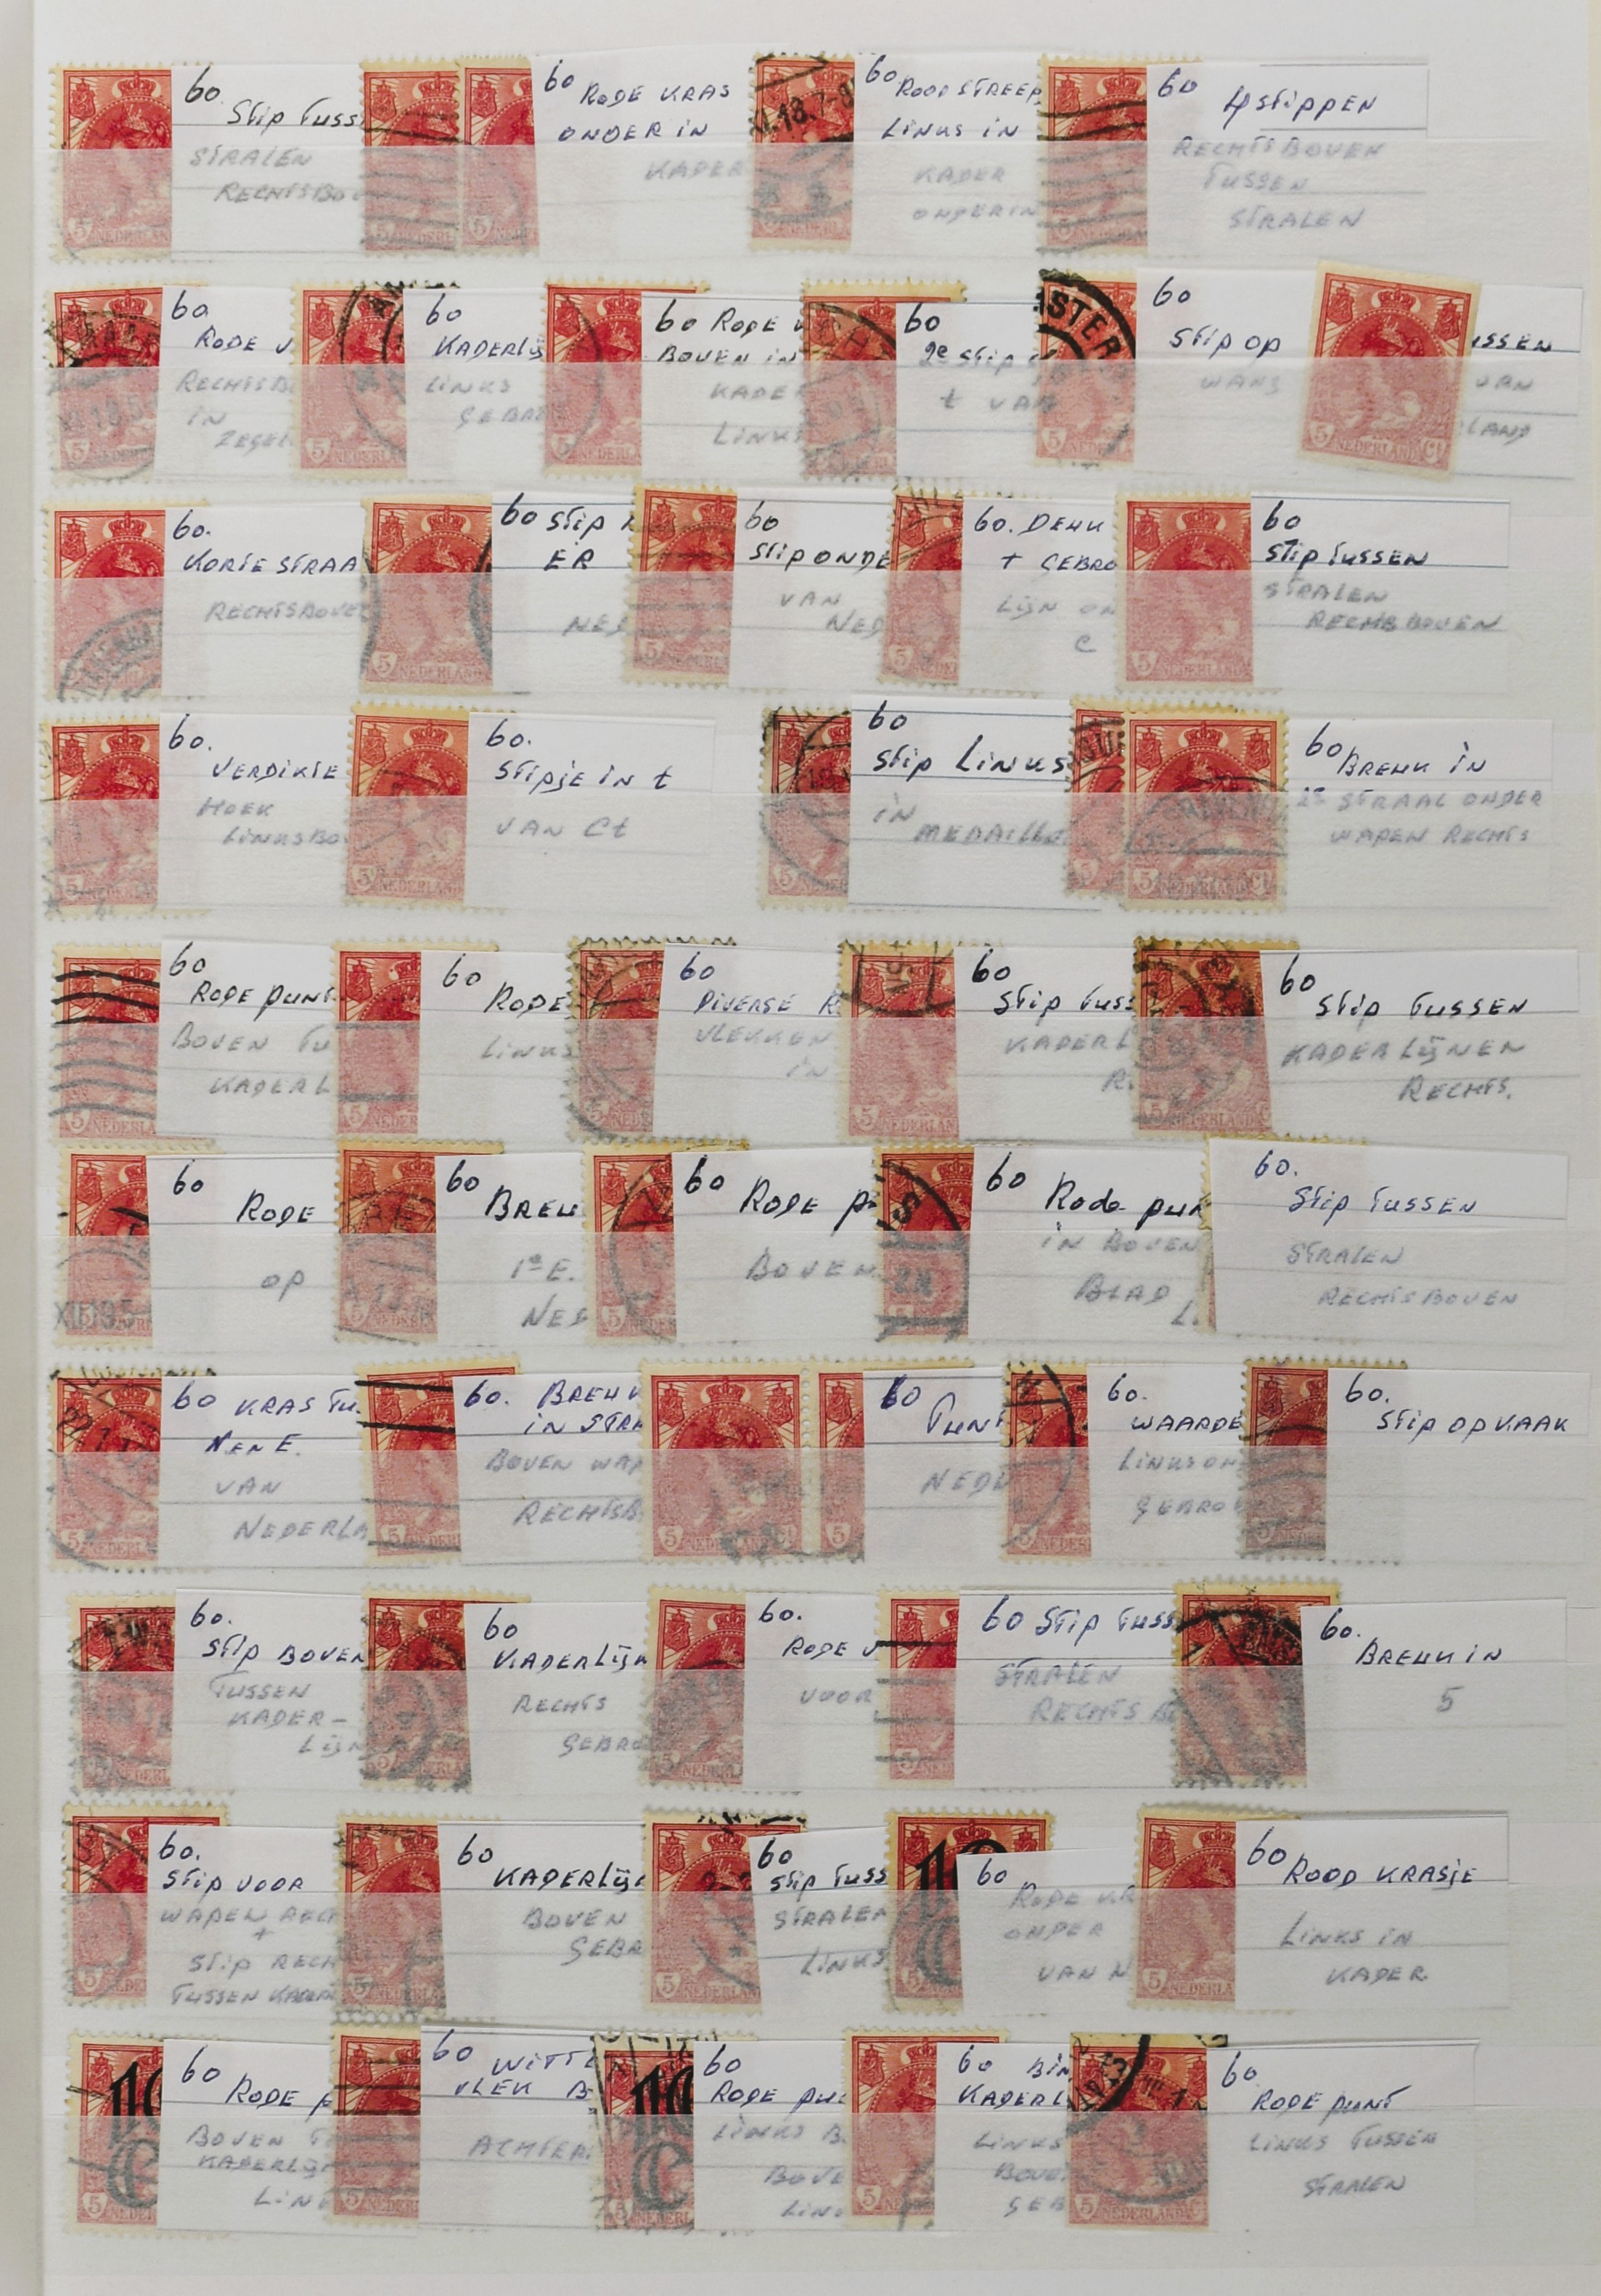 60
Stip Tuss
STRALEN
RECHTSBOV
60
RODE KRAS
ONDER IN
KADER
60
ROOD STREEP
LINKS IN
KADER
ONDERIN
60
4 STIPPEN
RECHTSBOVEN
TUSSEN
STRALEN
60
RODE V
RECHTSB
IN
ZEGEL
60
KADERLIJ
LINKS
GEBRO
60 RODE V
BOVEN IN
KADE
LINKS
60
2e STIP
t VAN
60
STIP OP
WANG
SSEN
VAN
LAND
60.
KORTE STRAA
RECHTSBOVE
60 STIP
ER
NED
60
STIP ONDE
VAN
NED
60. DEUK
+ GEBRO
LIJN ON
C
60
STIP TUSSEN
STRALEN
RECHTSBOVEN
60.
VERDIKTE
HOEK
LINKSBO
60.
STIPJE IN t
VAN Ct
60
STIP LINKS
IN
MEDAILLO
60
BREUK IN
2e STRAAL ONDER
WAPEN RECHTS
60
RODE PUNT
BOVEN TU
KADERL
60
RODE
LINKS
60
DIVERSE R
VLEKKEN
IN
60
STIP TUSS
KADERL
R
60
STIP TUSSEN
KADERLIJNEN
RECHTS.
60
RODE
OP
60
BREU
1e E.
NED
60
RODE P
BOVEN
60
Rode pun
IN BOVEN
BLAD
L.
60.
STIP TUSSEN
STRALEN
RECHTSBOVEN
60 KRAS TU
N EN E.
VAN
NEDERLA
60. BREUK
IN STRA
BOVEN WAP
RECHTSB
60
PUNT
NEDE
60.
WAARDE
LINKSON
GEBRO
60.
STIP OP KAAK
60.
STIP BOVEN
TUSSEN
KADER-
LIJN
60
KADERLIJN
RECHTS
GEBRO
60.
RODE V
VOOR
60 STIP TUSS
STRALEN
RECHTS B
60.
BREUK IN
5
60.
STIP VOOR
WAPEN RECH
+
STIP RECH
TUSSEN KADER
60
KADERLIJ
BOVEN
GEBR
60
STIP TUSS
STRALEN
LINKS
60
RODE KR
ONDER
VAN N
60
ROOD KRASJE
LINKS IN
KADER
60
RODE P
BOVEN T
KADERLIJ
LIN
60
WITTE
VLEK B
ACHTER
60
RODE PU
LINKS B.
BOVE
LIN
60 BIN
KADERL
LINKS
BOVE
GEB
60
RODE PUNT
LINKS TUSSEN
STRALEN